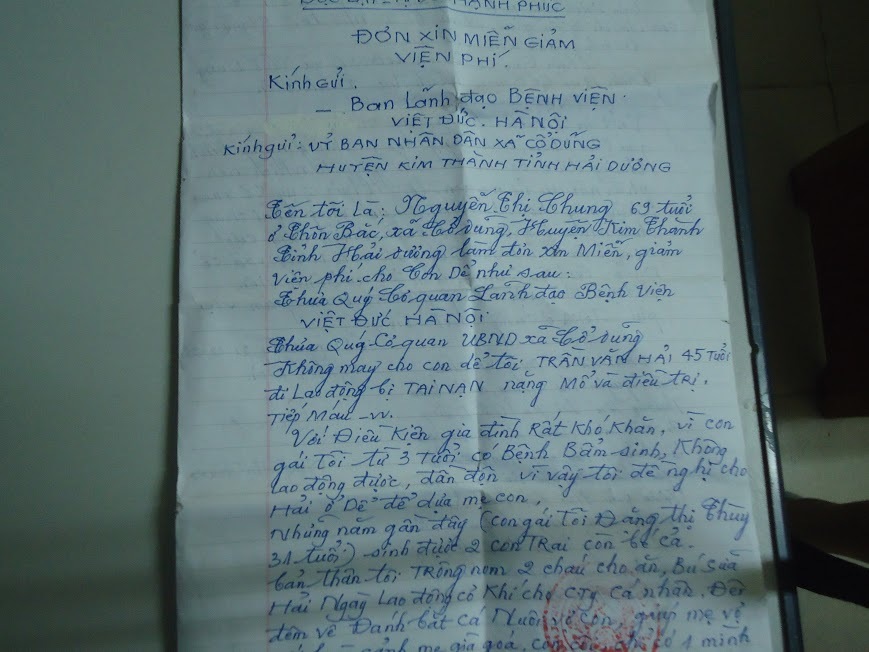 ĐỘC LẬP - TỰ DO HẠNH PHÚC
ĐƠN XIN MIỄN GIẢM
VIỆN PHÍ.
Kính Gửi.
- Ban Lãnh đạo BỆNH VIỆN
VIỆT ĐỨC. HÀ NỘI
Kính gửi: UỶ BAN NHÂN DÂN XÃ CỔ DŨNG
HUYỆN KIM THÀNH TỈNH HẢI DƯƠNG
Tên tôi Là: Nguyễn Thị Chung 69 tuổi
ở Thôn Bắc, xã Cổ Dũng, Huyện Kim Thành
Tỉnh Hải dương làm đơn xin Miễn, giảm
viện phí cho Con Dể như sau:
Thưa Quý Cơ quan Lãnh đạo Bệnh Viện
VIỆT ĐỨC HÀ NỘI
Thưa Quý Cơ quan UBND xã Cổ Dũng
Không may cho con dể tôi TRẦN VĂN HẢI 45 TUỔI
đi Lao động bị TAI NẠN nặng Mổ và điều trị.
Tiếp Máu -vv.
Với Điều Kiện gia đình Rất Khó Khăn, vì con
gái Tôi từ 3 Tuổi có Bệnh Bẩm sinh, Không
lao động được, đần độn vì vậy tôi đề nghị cho
Hải ở Dể để dựa mẹ con,
Những năm gần đây (con gái Tôi Đặng thị Thùy
31 tuổi) sinh được 2 con TRai còn bé cả.
bản thân tôi TRông nom 2 cháu cho ăn, Bú sữa
Hải Ngày Lao động cơ Khí cho CTy Cá nhân. Đến
đêm về Đánh bắt cá Nuôi vợ con, giúp mẹ vợ
mẹ già goá, con côi chỉ có 1 mình